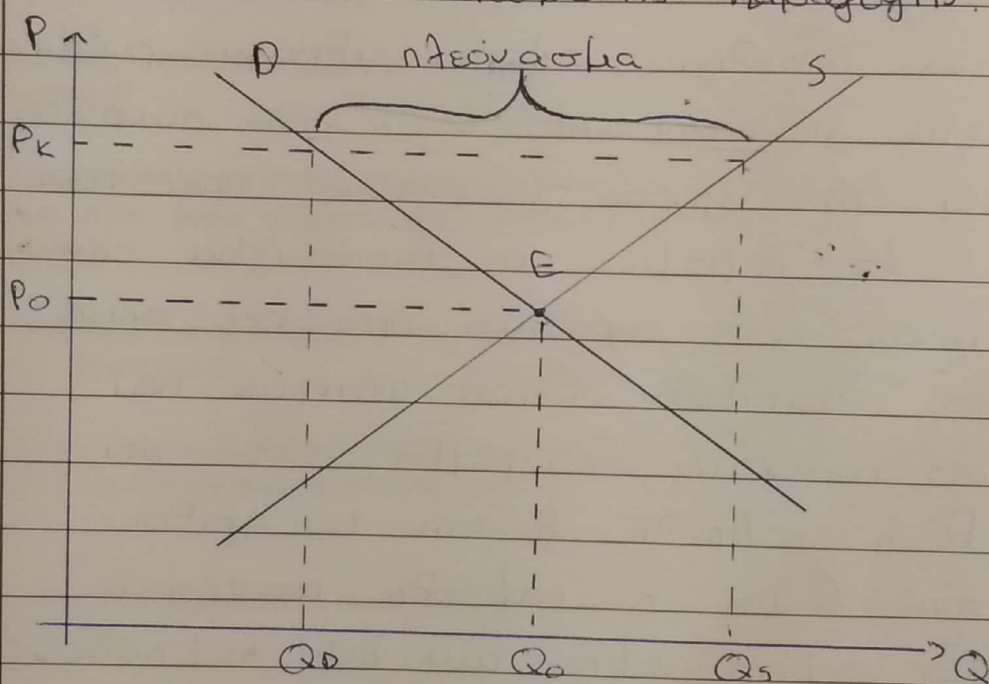 P
D πλεόνασμα S
PK
E
PO
QD Qo QS Q